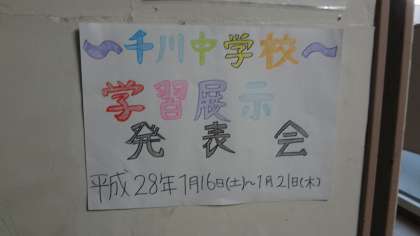 ～千川中学校～
学習展示
発表会
平成28年1月16日(土)～1月21日(木)